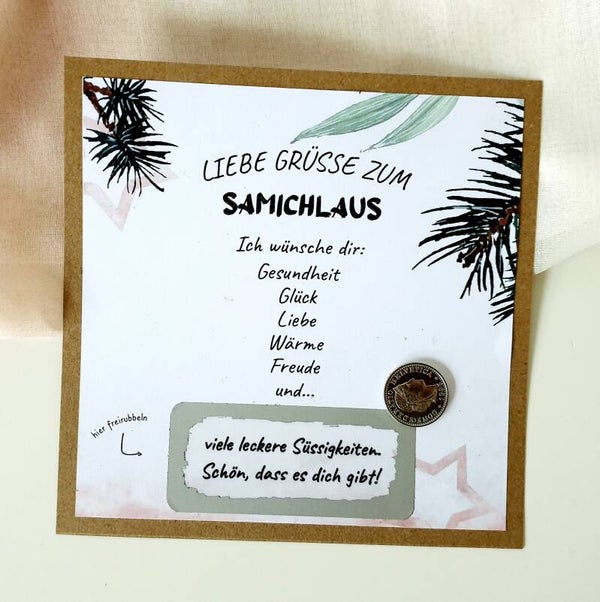 LIEBE GRÜSSE ZUM
SAMICHLAUS
Ich wünsche dir:
Gesundheit
Glück
Liebe
Wärme
Freude
und...
hier freirubbeln
viele leckere Süssigkeiten.
Schön, dass es dich gibt!
HELVETICA